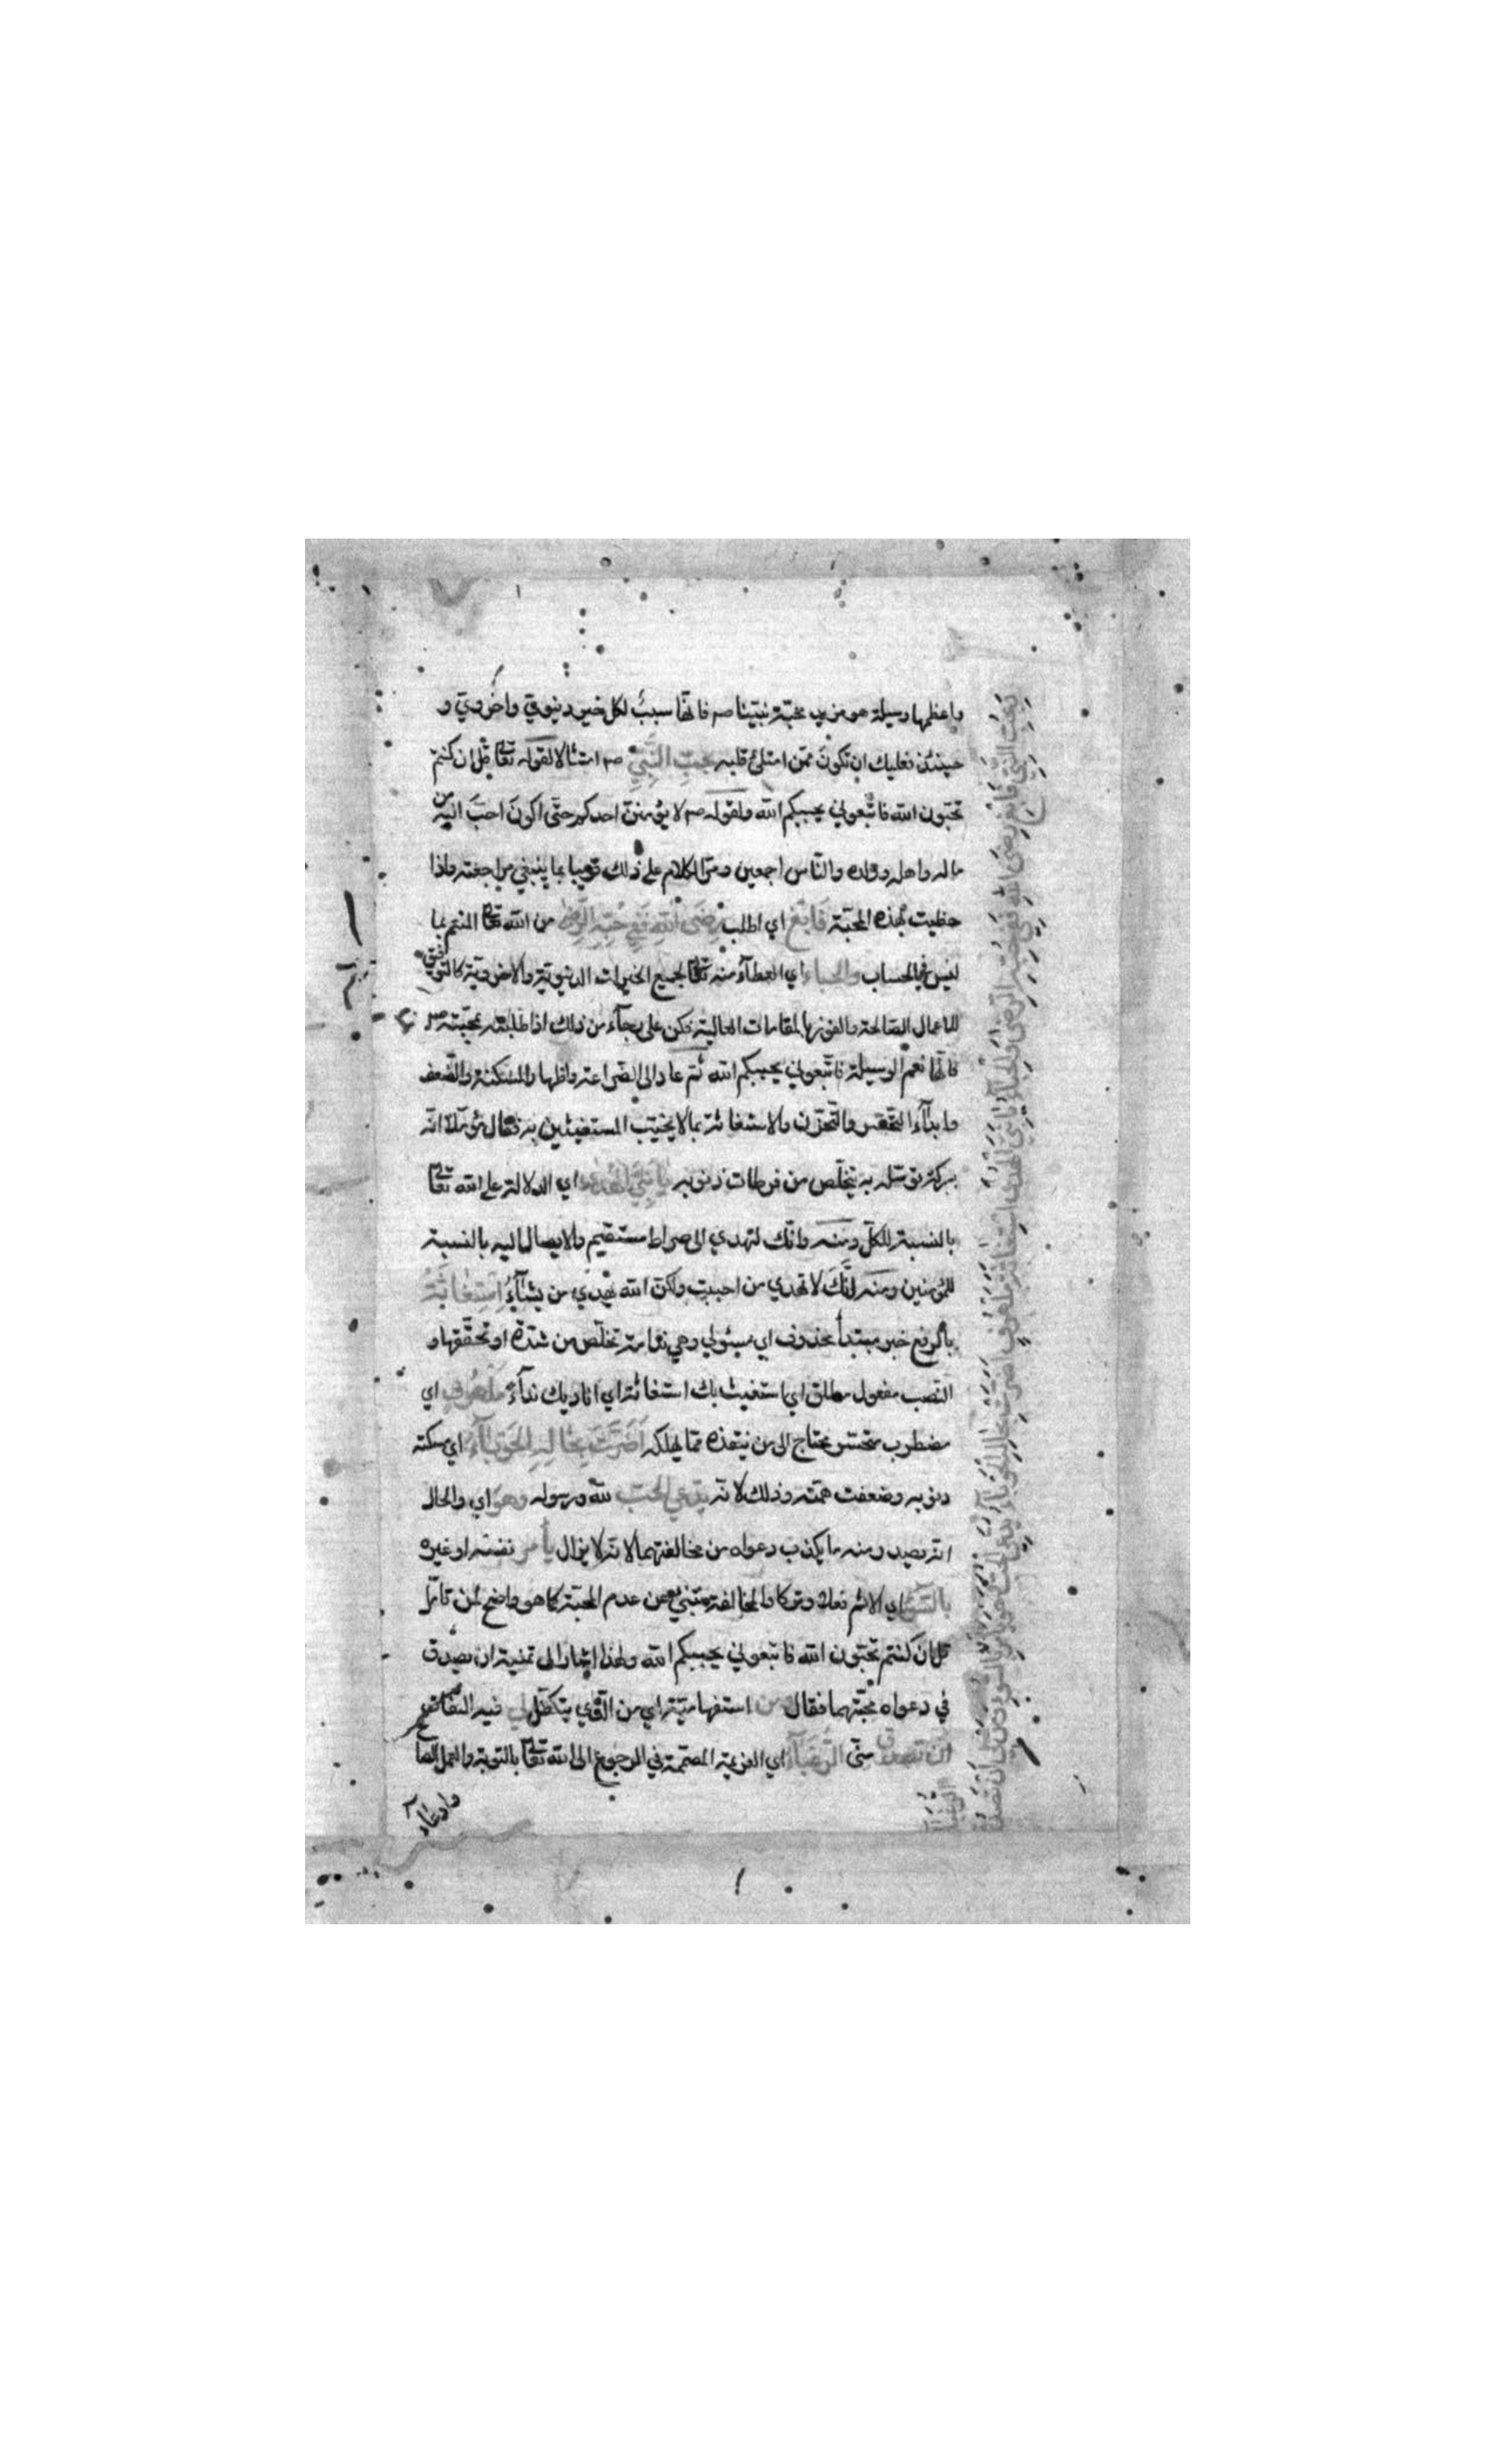 واعظمها وسيلة هو مزيد محبّة نبيّنا صم فانّها سببٌ لكل خير دنيويّ واخرويّ و
حينئذ فعليك ان تكونَ ممّن امتلئ قلبه بحبّ النّبيّ صم امتثالا لقوله تعالى قل ان كنتم
تحبّون الله فاتّبعوني يحببكم الله ولقوله صم لا يؤمننّ احدكم حتّى اكونَ احبّ اليه من
ماله واهله وولده والنّاس اجمعين ومرّ الكلام على ذلك قريبا بما ينبغي مراجعته واذا
حظيت بهذه المحبّة فَابْغِ اي اطلب رضَى الله ففي حبّه الرّضى من الله تعالى المنعم بما
ليس في الحساب والحباء اي العطآء منه تعالى لجميع الخيرات الدنيويّة والاخرويّة كالتوفيق
للاعمال الصّالحة والفوز بالمقامات العالية فكن على رجآء من ذلك اذا طلبته بمحبّته صم
فانّها نعم الوسيلة فاتّبعوني يحببكم الله ثم عاد الى الضّراعة واظهار المسكنة والضّعف
وابدآء التحزّن والاستغاثة بما لا يخيّب المستغيثين به فقال مؤمّلا انّه
ببركة توسّله به يتخلّص من فرطات ذنوبه يا نبيَّ الهُدى اي الدلالة على الله تعالى
بالنسبة للكلّ ومنه وانّك لتهدي الى صراط مستقيم والايصال اليه بالنسبة
للمؤمنين ومنه انّكَ لا تهدي من احببت ولكنّ الله يهدي من يشآءُ استغاثةُ
بالرفع خبر مبتدأ محذوف اي مسئولي وهي نداء من يخلّص من شدّة او تحقّقها و
النصب مفعول مطلق اي استغيث بك استغاثة اي اناديك ندآءَ ملهوفٍ اي
مضطرب متحسّر محتاج الى من ينقذه ممّا يهلكه اَضرّت بحاله الحوبآء اي مسكنة
ذنوبه وضعفت همّته وذلك لانّه يدّعي الحبّ لله ورسوله وهو اي والحال
انّه يصدر منه ما يكذب دعواه من مخالفتهما لانّه لا يزال يأمر نفسه او غيره
بالسّوء اي الاثم فعلا وتركا والمخالفة تنبئ عن عدم المحبّة كما هو واضح لمن تأمّل
قل ان كنتم تحبّون الله فاتّبعوني يحببكم الله ولهذا اشار الى تمنّيه ان يصدق
في دعواه محبّتهما فقال ومن استفهاميّة اي من الذي يتكفّل لي فيه التفات
ان تصدق منّي الرغبآء اي العزيمة المصمّمة في الرجوع الى الله تعالى بالتوبة والعمل الصالح
وادعآء